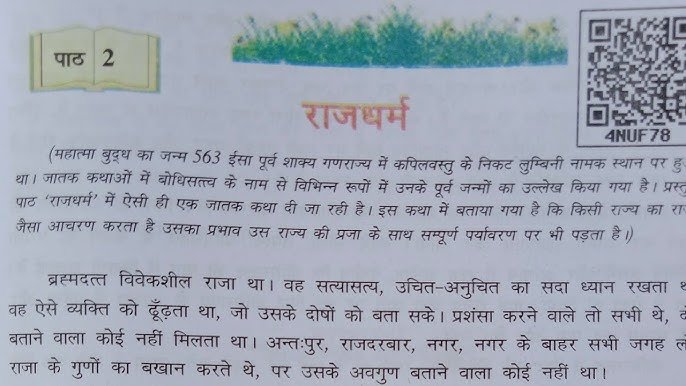 पाठ 2
राजधर्म
4NUF78
(महात्मा बुद्ध का जन्म 563 ईसा पूर्व शाक्य गणराज्य में कपिलवस्तु के निकट लुम्बिनी नामक स्थान पर
था। जातक कथाओं में बोधिसत्त्व के नाम से विभिन्न रूपों में उनके पूर्व जन्मों का उल्लेख किया गया है।
पाठ ‘राजधर्म’ में ऐसी ही एक जातक कथा दी जा रही है। इस कथा में बताया गया है कि किसी राज्य का
जैसा आचरण करता है उसका प्रभाव उस राज्य की प्रजा के साथ सम्पूर्ण पर्यावरण पर भी पड़ता है।)
ब्रह्मदत्त विवेकशील राजा था। वह सत्यासत्य, उचित-अनुचित का सदा ध्यान रखता
वह ऐसे व्यक्ति को ढूँढ़ता था, जो उसके दोषों को बता सके। प्रशंसा करने वाले तो सभी थे,
बताने वाला कोई नहीं मिलता था। अन्तःपुर, राजदरबार, नगर, नगर के बाहर सभी जगह
राजा के गुणों का बखान करते थे, पर उसके अवगुण बताने वाला कोई नहीं था।